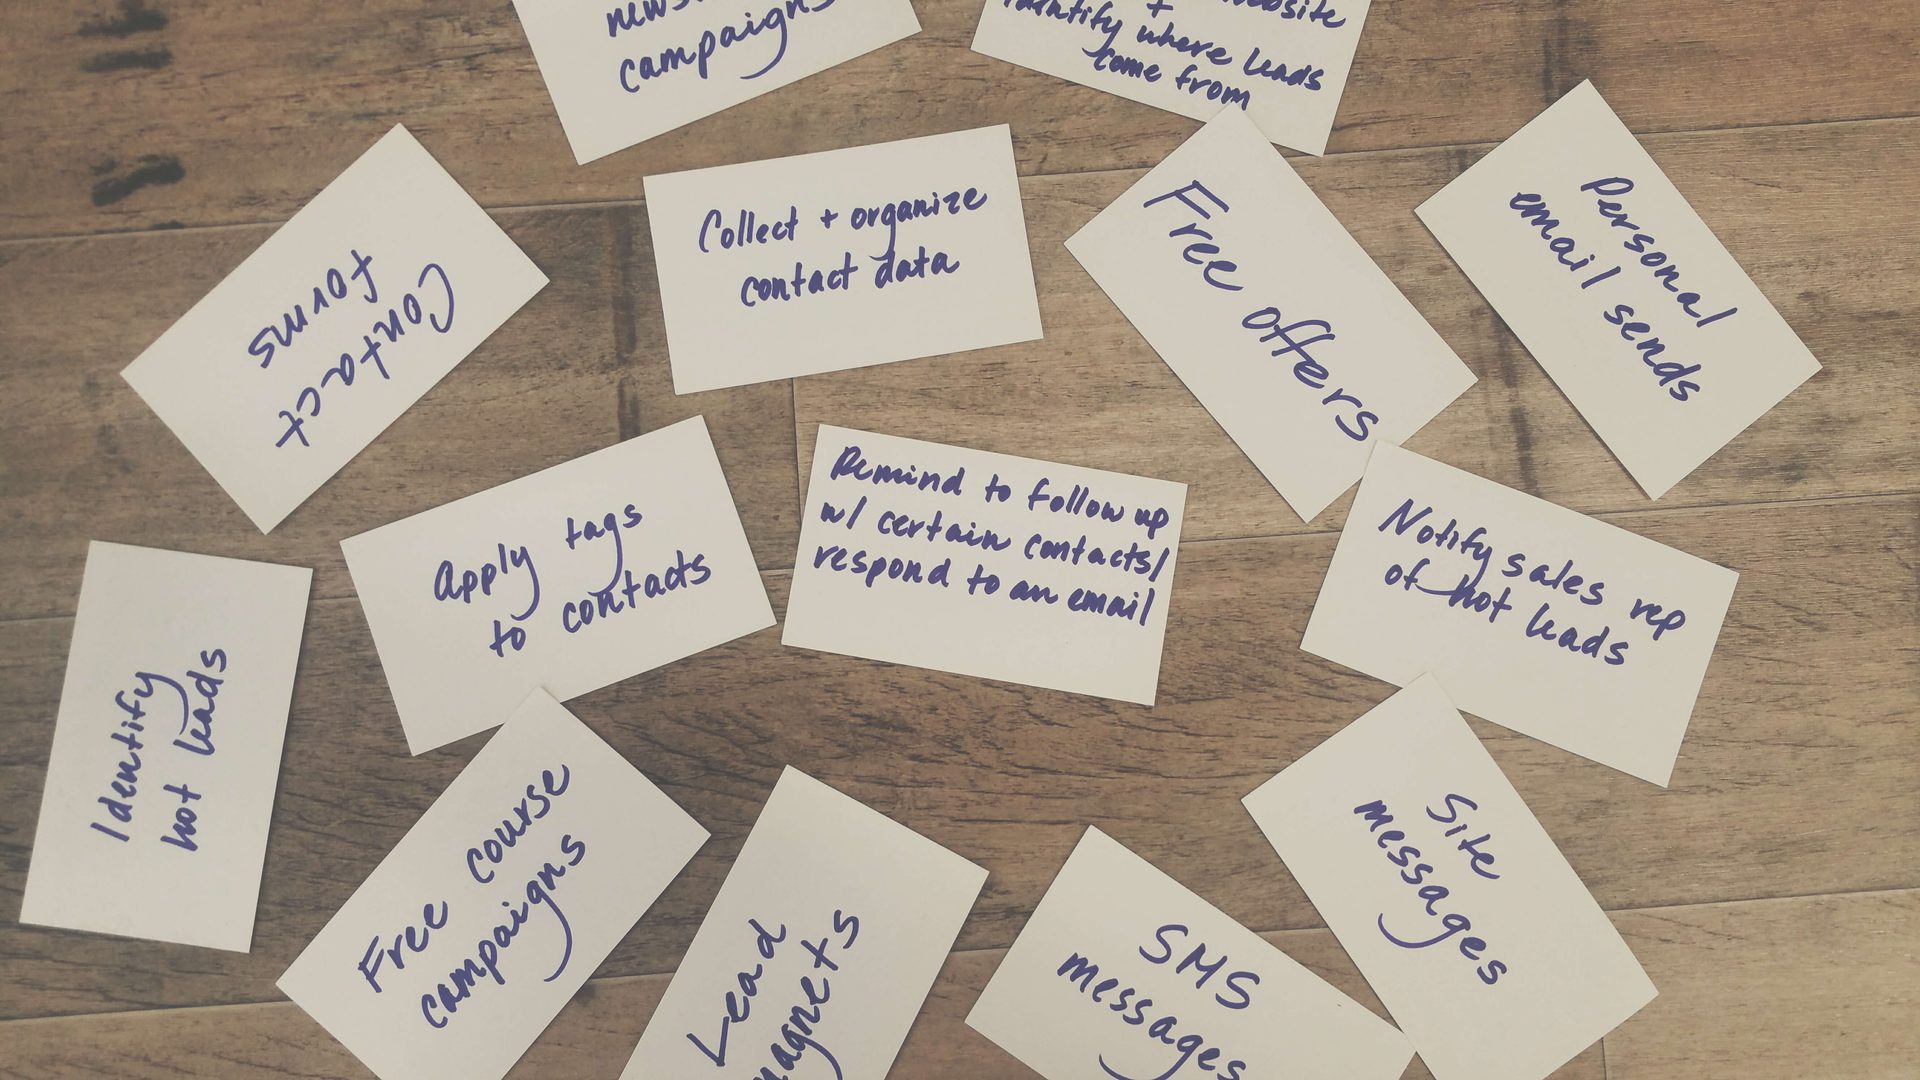 campaigns
identify where leads
come from
Contact
forms
Collect + organize
contact data
Free offers
Personal
email sends
Apply tags
to contacts
Remind to follow up
w/ certain contacts/
respond to an email
Notify sales rep
of hot leads
Identify
hot leads
Free course
campaigns
Lead
SMS
messages
Site
messages